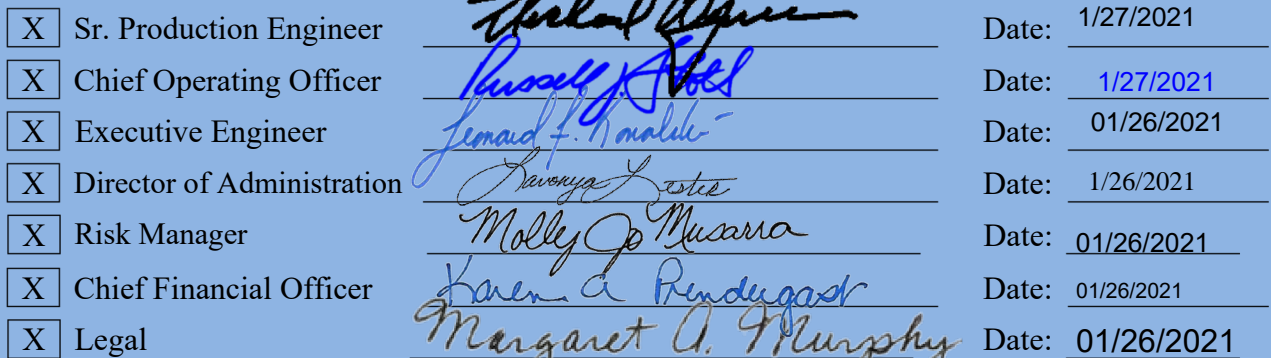 X Sr. Production Engineer Date: 1/27/2021
X Chief Operating Officer Russell J. Stoll Date: 1/27/2021
X Executive Engineer Leonard F. Kowalski Date: 01/26/2021
X Director of Administration Lavonya Lester Date: 1/26/2021
X Risk Manager Molly Jo Musarra Date: 01/26/2021
X Chief Financial Officer Karen A Prendergast Date: 01/26/2021
X Legal Margaret A. Murphy Date: 01/26/2021